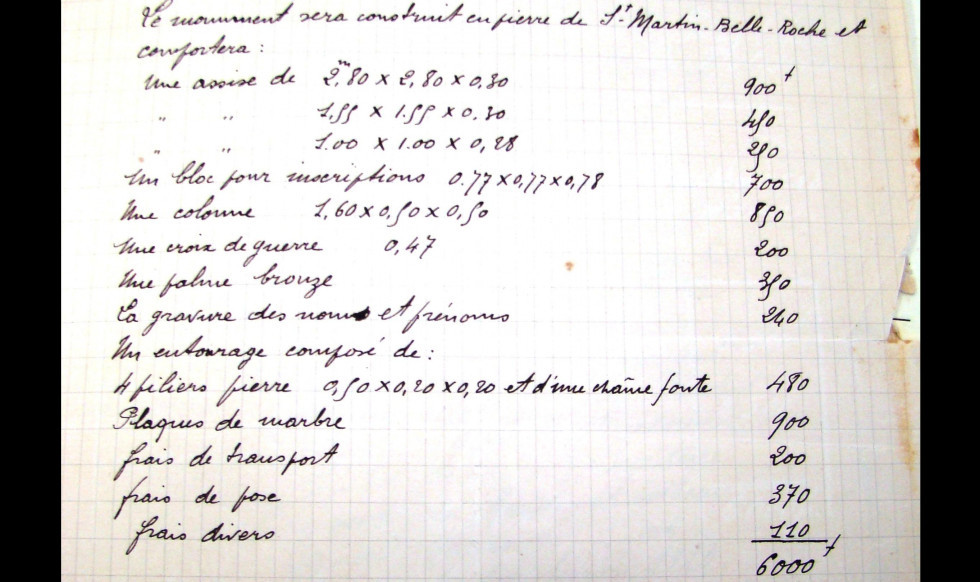 Le monument sera construit en pierre de St Martin-Belle-Roche et
comportera :
Une assise de 2,m80 x 2,80 x 0,30 900f
" " 1,55 x 1.55 x 0.30 450
" " 1.00 x 1.00 x 0,28 250
Un bloc pour inscriptions 0.77x0,77x0,78 700
Une colonne 1,60x0,50x0,50 850
Une croix de guerre 0,47 200
Une palme bronze 350
La gravure des noms et prénoms 240
Un entourage composé de :
4 piliers pierre 0,50x0,20x0,20 et d'une chaîne fonte 480
Plaques de marbre 900
frais de transport 200
frais de pose 370
frais divers 110
6000f